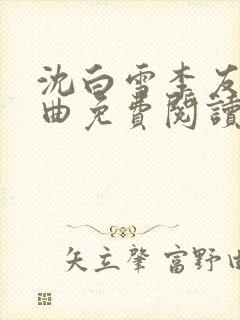 沈白雪李友
曲免費閱讀
矢立肇 富野由